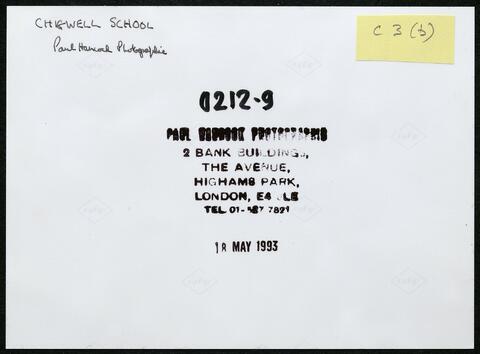 CHIGWELL SCHOOL
Paul Hancock Photographic
C 3 (b)
0212-9
PAUL PHOTOGRAPHIC
2 BANK BUILDINGS,
THE AVENUE,
HIGHAMS PARK,
LONDON, E4 LE
TEL 01-527 7821
18 MAY 1993